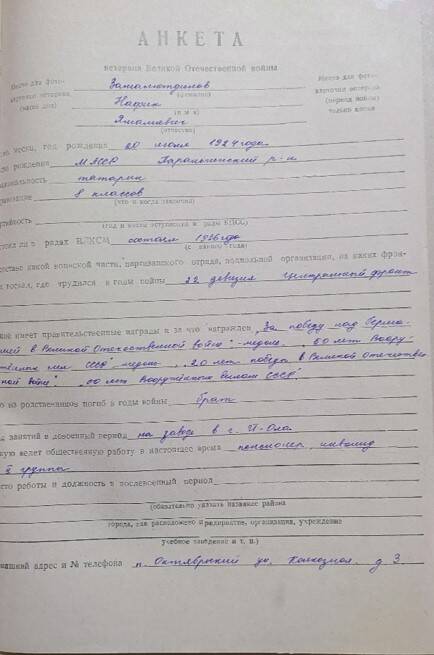 АНКЕТА
ветерана Великой Отечественной войны
Место для фото- Замалютдинов Место для фото-
(фамилия)
(период войны)
Нафик
(имя)
только копия
(отчество)
число, месяц, год рождения 20 июля 1924 года
рождения МАССР Параньгинский р-н
национальность татарин
8 классов
(что и когда закончил)
партийность
(год и месяц вступления в ряды КПСС)
состоял ли в рядах ВЛКСМ состоял 1936 году
(с какого года)
составе какой воинской части, партизанского отряда, подпольной организации, на каких фрон-
где трудился в годы войны 22 дивизия Центральный фронт
имеет правительственные награды и за что награжден "За победу над Герма-
нией в Великой Отечественной войне" медаль. "50 лет Воору-
СССР" медаль "20 лет победы в Великой Отечествен
ной войне", "60 лет Вооружённых силам СССР"
из родственников погиб в годы войны брат
занятий в довоенный период на заводе в г. Й-Ола
какую ведет общественную работу в настоящее время пенсионер, инвалид
II группы
место работы и должность в послевоенный период
(обязательно указать название района
города, где расположено предприятие, организация, учреждение
учебное заведение и т. п.)
домашний адрес и № телефона п. Октябрьский ул. Колхозная. д 3